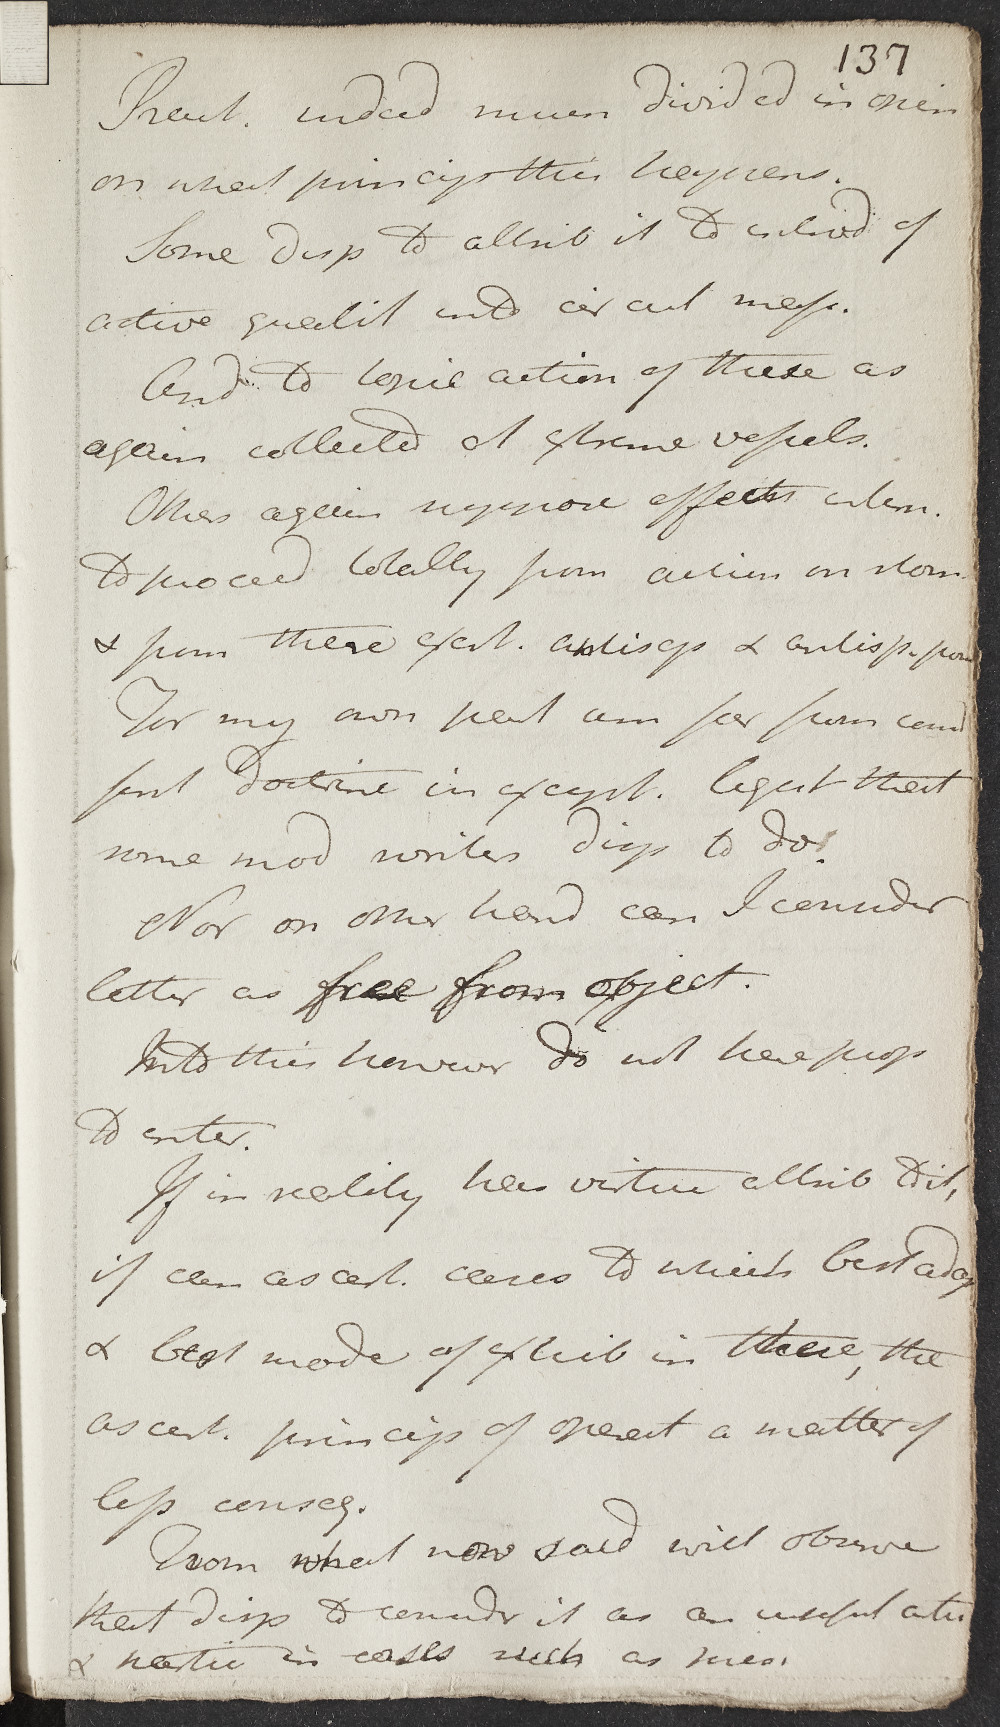 137
Pract. indeed much divided in opin
on what princip this happens.
Some disp to attrib it to introd of
active qualit into circul mass.
And to topic action of these as
again collected at extreme vessels.
Others again suppose effects intern.
to proceed totally from action on stom
& from these expl. antisep & antisp. pow
For my own part am far from cond
first doctrine in except. light that
some mod writers disp to do.
Nor on other hand can I consider
latter as free from object.
Into this however do not here prop
to enter.
If in reality has virtue attrib to it,
if can ascert. cases to which best adap
& best mode of exhib in these, the
ascert. princip of operat a matter of
less conseq.
From what now said will observe
that disp to consider it as an useful
& in cases such as pres.